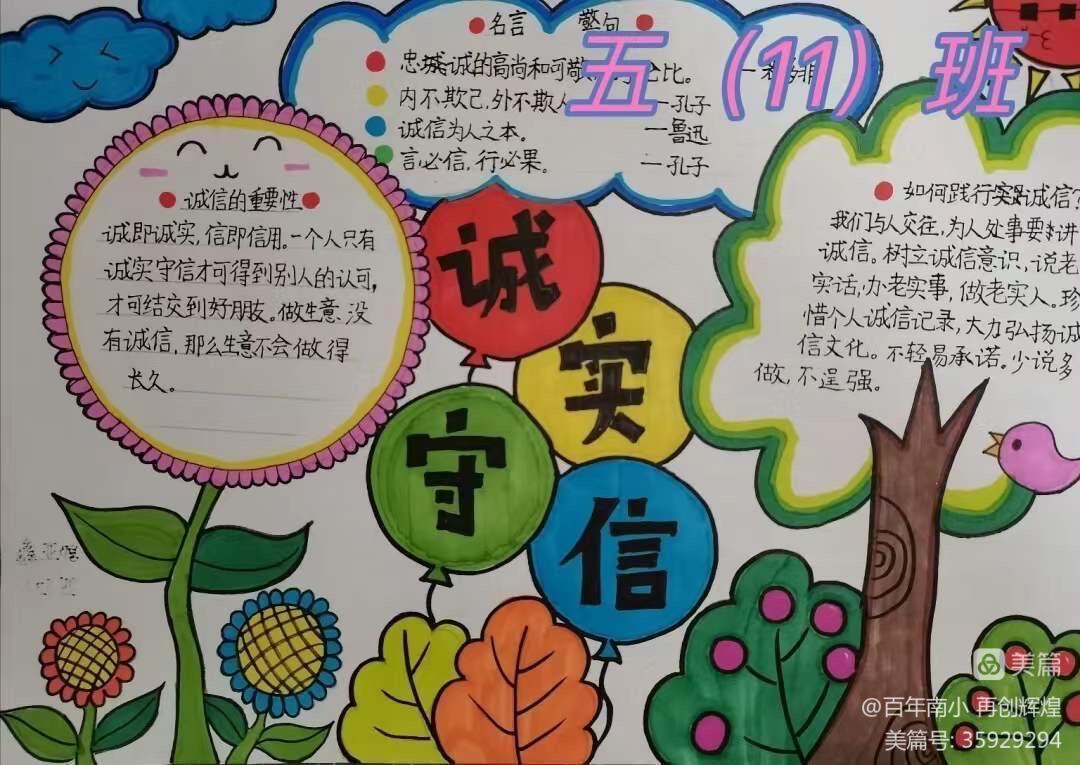 五（11）班
名言 警句
忠诚的高尚和可敬 比。
内不欺己，外不欺人 一孔子
诚信为人之本。 一鲁迅
言必信，行必果。 一孔子
诚信的重要性
诚即诚实，信即信用。一个人只有
诚实守信才可得到别人的认可，
才可结交到好朋友。做生意、没
有诚信，那么生意不会做得
长久。
诚
实
守
信
如何践行 诚信？
我们与人交往，为人处事要讲
诚信。树立诚信意识，说老
实话，办老实事，做老实人。珍
惜个人诚信记录，大力弘扬诚
信文化。不轻易承诺。少说多
做，不逞强。
美篇
@百年南小 再创辉煌
美篇号: 35929294